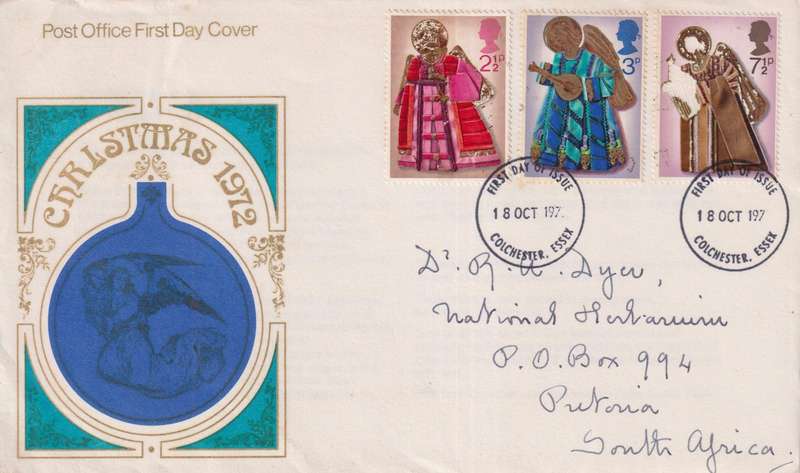 Post Office First Day Cover
CHRISTMAS 1972
2½P
3P
7½P
FIRST DAY OF ISSUE
18 OCT 197
COLCHESTER, ESSEX
FIRST DAY OF ISSUE
18 OCT 197
COLCHESTER, ESSEX
Dr. R. A. Dyer,
National Herbarium
P. O. Box 994
Pretoria
South Africa.